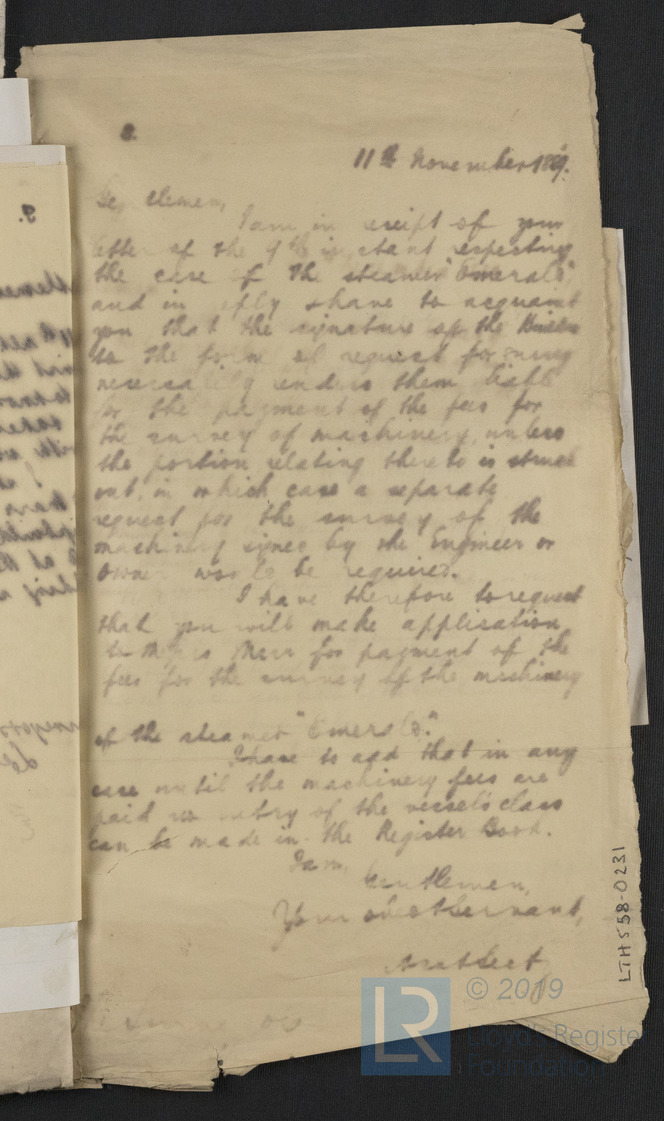 11th November 1889.
Gentlemen,
I am in receipt of your
letter of the 9th instant respecting
the case of the steamer "Emerald",
and in reply I have to acquaint
you that the signature of the Builder
to the form of request for survey
necessarily renders them liable
for the payment of the fees for
the survey of machinery, unless
the portion relating thereto is struck
out, in which case a separate
request for the survey of the
machinery signed by the Engineer or
Owner would be required.
I have therefore to request
that you will make application
to Messrs for payment of the
fees for the survey of the machinery
of the steamer "Emerald."
I have to add that in any
case until the machinery fees are
paid no entry of the vessel's class
can be made in the Register Book.
I am,
Gentlemen,
Your obedt Servant,
Asst Secty
LTHS58-0231
© 2019
LR
Lloyd's Register
Foundation